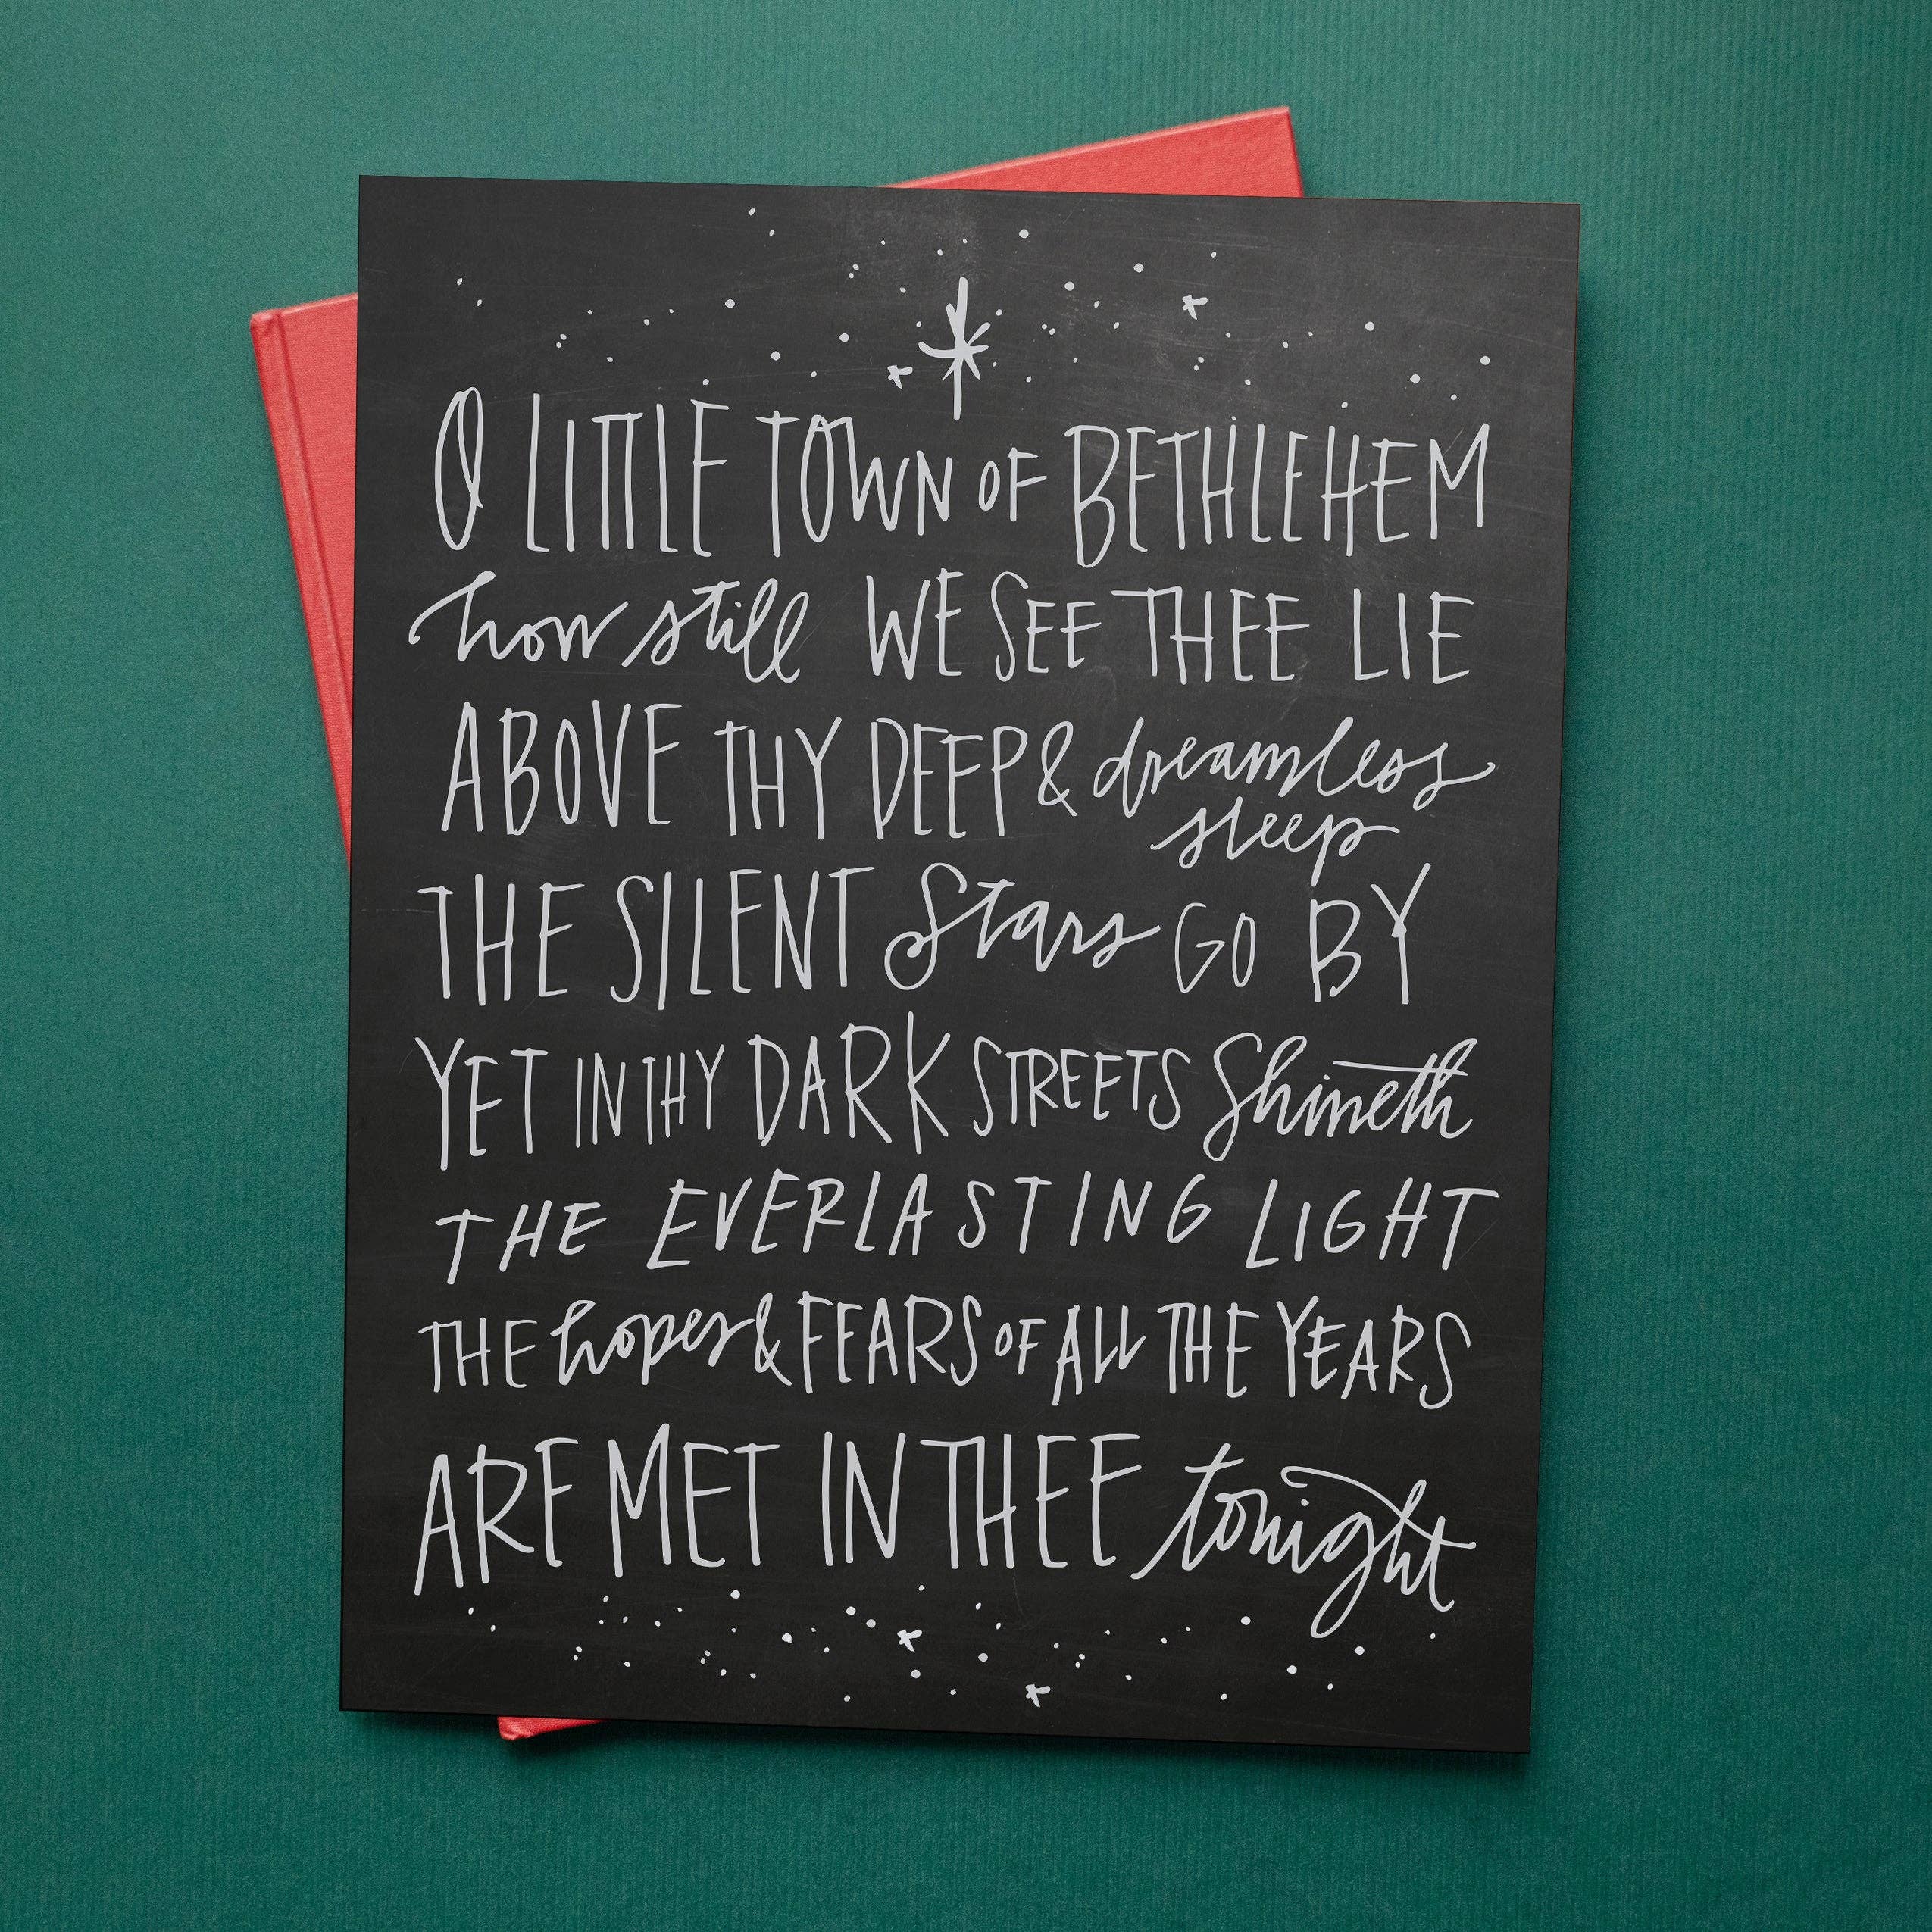 O LITTLE TOWN OF BETHLEHEM
how still WE SEE THEE LIE
ABOVE THY DEEP & dreamless
sleep
THE SILENT Stars GO BY
YET IN THY DARK STREETS Shineth
THE EVERLASTING LIGHT
THE hopes & FEARS OF ALL THE YEARS
ARE MET IN THEE tonight